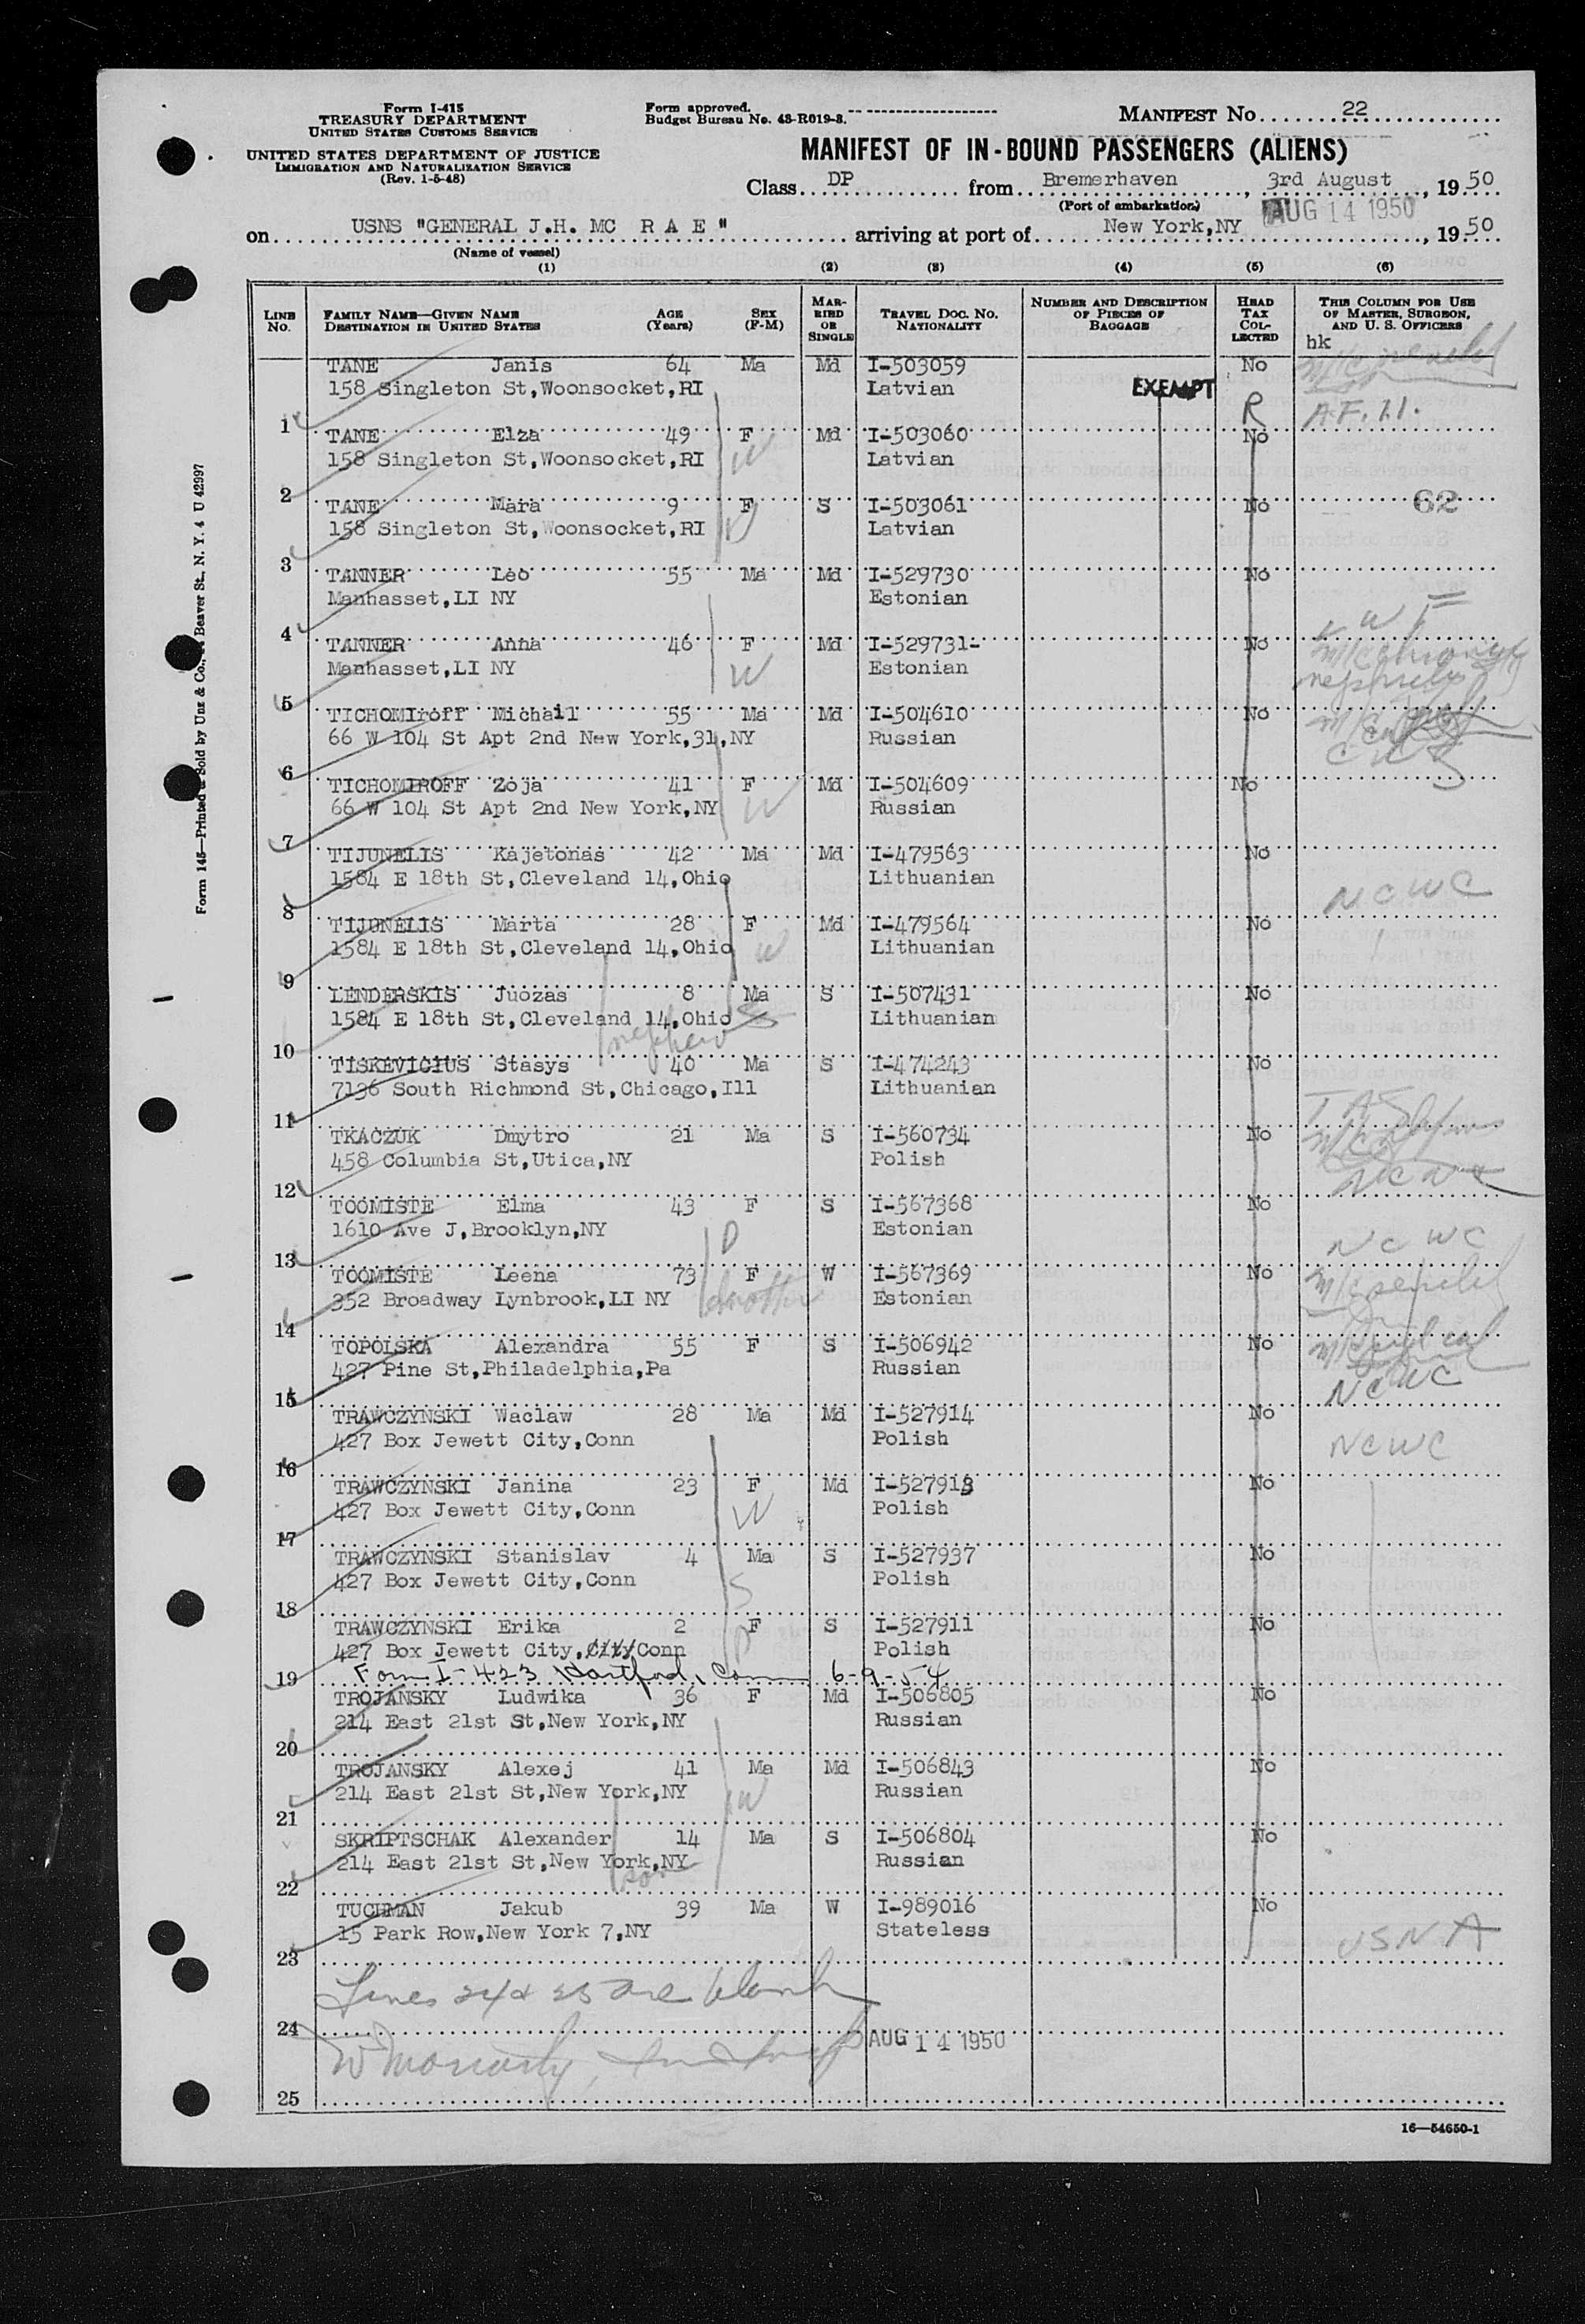 Form I-415
TREASURY DEPARTMENT
UNITED STATES CUSTOMS SERVICE
UNITED STATES DEPARTMENT OF JUSTICE
IMMIGRATION AND NATURALIZATION SERVICE
(Rev. 1-5-48)
Form approved.
Budget Bureau No. 43-R019-3.
MANIFEST No. 22
MANIFEST OF IN-BOUND PASSENGERS (ALIENS)
Class DP from Bremerhaven, 3rd August, 1950
(Port of embarkation)
AUG 14 1950
on USNS "GENERAL J.H. MC R A E" arriving at port of New York,NY, 1950
(Name of vessel)
(1) (2) (3) (4) (5) (6)
LINE NO. FAMILY NAME—GIVEN NAME DESTINATION IN UNITED STATES AGE (Years) SEX (F-M) MARRIED OR SINGLE TRAVEL DOC. NO. NATIONALITY NUMBER AND DESCRIPTION OF PIECES OF BAGGAGE HEAD TAX COLLECTED THIS COLUMN FOR USE OF MASTER, SURGEON, AND U. S. OFFICERS
hk
TANE Janis 64 Ma Md I-503059 No
158 Singleton St,Woonsocket,RI Latvian EXEMPT
1 R A.F. 11.
TANE Elza 49 F Md I-503060 No
158 Singleton St,Woonsocket,RI W Latvian
2
TANE Mara 9 F S I-503061 No 62
158 Singleton St,Woonsocket,RI D Latvian
3
TANNER Leo 55 Ma Md I-529730 No
Manhasset,LI NY Estonian
4
TANNER Anna 46 F Md I-529731- No
Manhasset,LI NY W Estonian
5
TICHOMIroff Michail 55 Ma Md I-504610 No
66 W 104 St Apt 2nd New York,31,NY Russian
6
TICHOMIROFF Zoja 41 F Md I-504609 No
66 W 104 St Apt 2nd New York,NY W Russian
7
TIJUNELIS Kajetonas 42 Ma Md I-479563 No
1584 E 18th St,Cleveland 14,Ohio Lithuanian NCWC
8
TIJUNELIS Marta 28 F Md I-479564 No
1584 E 18th St,Cleveland 14,Ohio W Lithuanian
9
LENDERSKIS Juozas 8 Ma S I-507431 No
1584 E 18th St,Cleveland 14,Ohio Lithuanian
nephew
10
TISKEVICIUS Stasys 40 Ma S I-474243 No
7136 South Richmond St,Chicago,Ill Lithuanian
11
TKACZUK Dmytro 21 Ma S I-560734 No
458 Columbia St,Utica,NY Polish
12 NCWC
TOOMISTE Elma 43 F S I-567368 No
1610 Ave J,Brooklyn,NY D Estonian NCWC
13
TOOMISTE Leena 73 F W I-567369 No
352 Broadway Lynbrook,LI NY mother Estonian
14
TOPOLSKA Alexandra 55 F S I-506942 No
427 Pine St,Philadelphia,Pa Russian NCWC
15
TRAWCZYNSKI Waclaw 28 Ma Md I-527914 No
427 Box Jewett City,Conn Polish NCWC
16
TRAWCZYNSKI Janina 23 F Md I-527913 No
427 Box Jewett City,Conn W Polish
17
TRAWCZYNSKI Stanislav 4 Ma S I-527937 No
427 Box Jewett City,Conn S Polish
18
TRAWCZYNSKI Erika 2 F S I-527911 No
427 Box Jewett City,City Conn D Polish
19 Form I-423 Hartford, Conn 6-9-54
TROJANSKY Ludwika 36 F Md I-506805 No
214 East 21st St,New York,NY Russian
20
TROJANSKY Alexej 41 Ma Md I-506843 No
214 East 21st St,New York,NY W Russian
21
SKRIPTSCHAK Alexander 14 Ma S I-506804 No
214 East 21st St,New York,NY Russian
son
22
TUCHMAN Jakub 39 Ma W I-989016 No
15 Park Row,New York 7,NY Stateless USNA
23
Lines 24 & 25 are blank
24
W Moriarty, AUG 14 1950
25
16—54650-1
Form 145—Printed & Sold by Unz & Co., Beaver St., N. Y. 4 U 42997